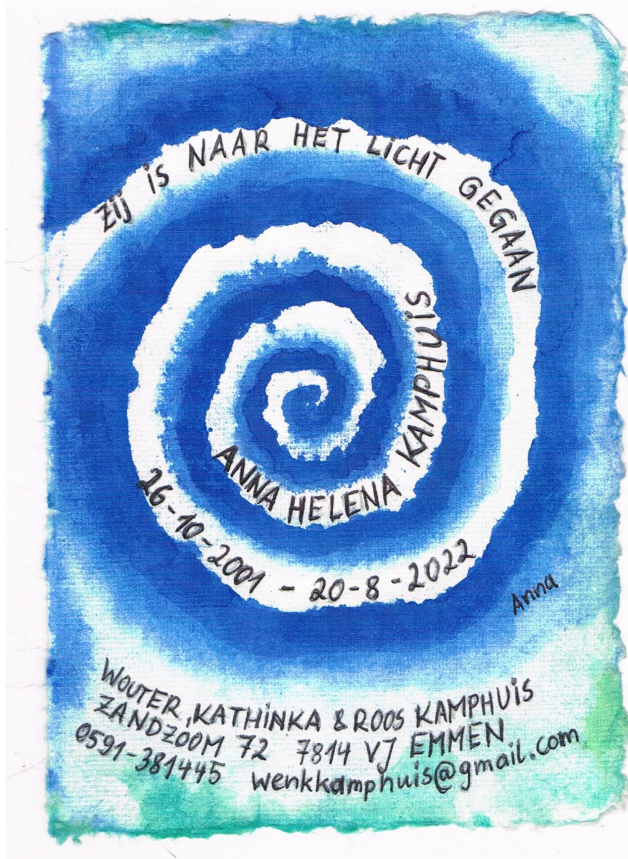 ZIJ IS NAAR HET LICHT GEGAAN
ANNA HELENA KAMPHUIS
26-10-2001 - 20-8-2022
Anna
WOUTER, KATHINKA & ROOS KAMPHUIS
ZANDZOOM 72 7814 VJ EMMEN
0591-381445 wenkkamphuis@gmail.com